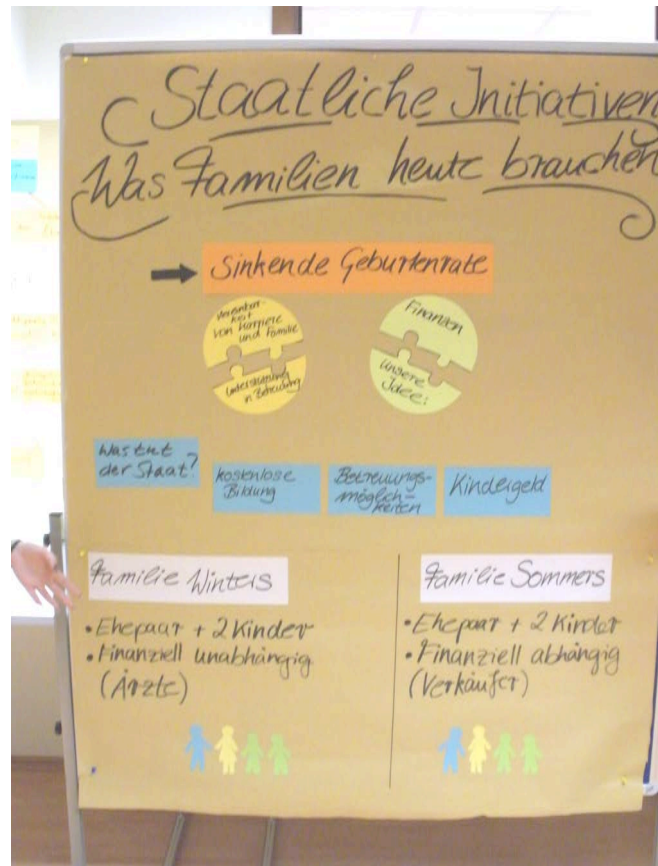 Staatliche Initiativen
Was Familien heute brauchen
Sinkende Geburtenrate
Vereinbar-
keit
von Karriere
und Familie
Unterstützung
in Betreuung
Finanzen
Unsere
Idee:
Was tut
der Staat?
kostenlose
Bildung
Betreuungs-
möglich-
keiten
Kindergeld
Familie Winters
• Ehepaar + 2 Kinder
• Finanziell unabhängig
(Ärzte)
Familie Sommers
• Ehepaar + 2 Kinder
• Finanziell abhängig
(Verkäufer)